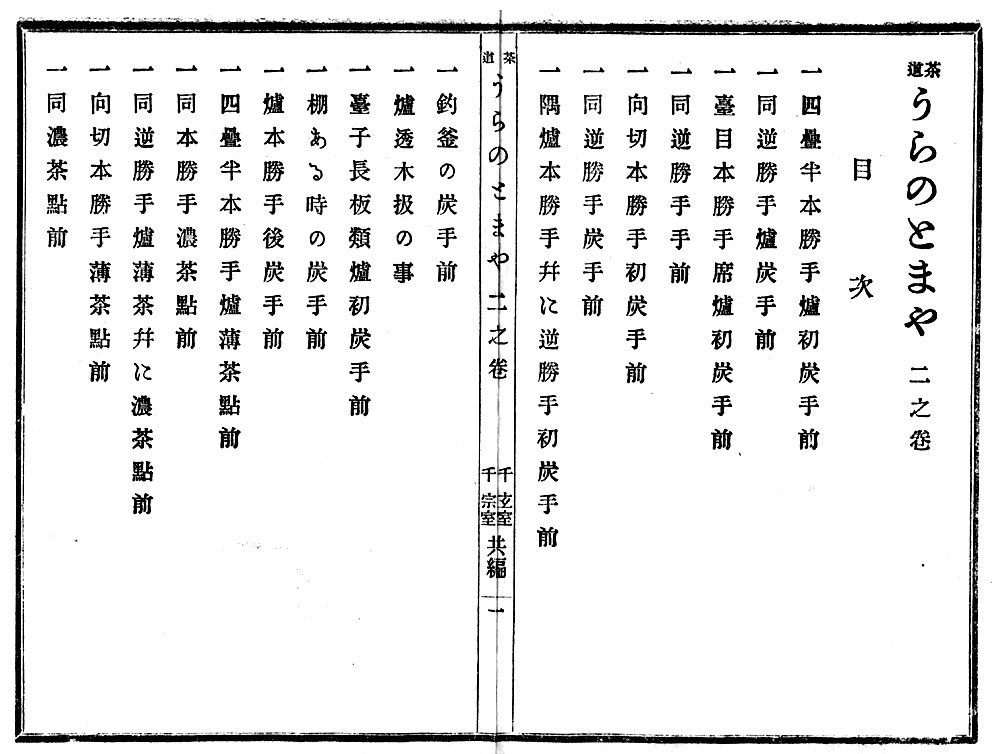 茶道うらのとまや 二之卷
目次
一四疊半本勝手爐初炭手前
一同逆勝手爐炭手前
一臺目本勝手席爐初炭手前
一同逆勝手手前
一向切本勝手初炭手前
一同逆勝手炭手前
一隅爐本勝手幷に逆勝手初炭手前
茶道うらのとまや二之卷
千玄室
千宗室
共編
一
一釣釜の炭手前
一爐透木扱の事
一臺子長板類爐初炭手前
一棚ある時の炭手前
一爐本勝手後炭手前
一四疊半本勝手爐薄茶點前
一同本勝手濃茶點前
一同逆勝手爐薄茶幷に濃茶點前
一向切本勝手薄茶點前
一同濃茶點前